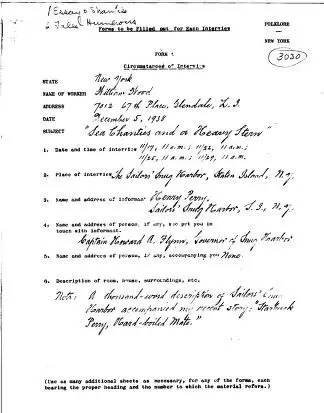 1 Essay & Shanties
2 Tales Humorous
Forms to be Filled out for Each Interview
FOLKLORE
NEW YORK
3030
FORM A
Circumstances of Interview
STATE New York
NAME OF WORKER William Wood
ADDRESS 7012 67th Place, Glendale, L. I.
DATE December 5, 1938
SUBJECT "Sea Chanties and a Heavy Stern"
1. Date and time of interview 11/9, 11 a.m.; 11/22, 11 a.m.;
11/25, 11 a.m.; 11/29, 11 a.m.
2. Place of interview The Sailors' Snug Harbor, Staten Island, N.Y.
3. Name and address of informant Henry Perry,
Sailors' Snug Harbor, S. I., N.Y.
4. Name and address of person, if any, who put you in
touch with informant.
Captain Howard A. Flynn, Governor of Snug Harbor
5. Name and address of person, if any, accompanying you None.
6. Description of room, house, surroundings, etc.
Note: A thousand-word description of Sailors' Snug
Harbor accompanied my recent story:
Perry, Hard-boiled Mate."
(Use as many additional sheets as necessary, for any of the forms, each
bearing the proper heading and the number to which the material refers.)